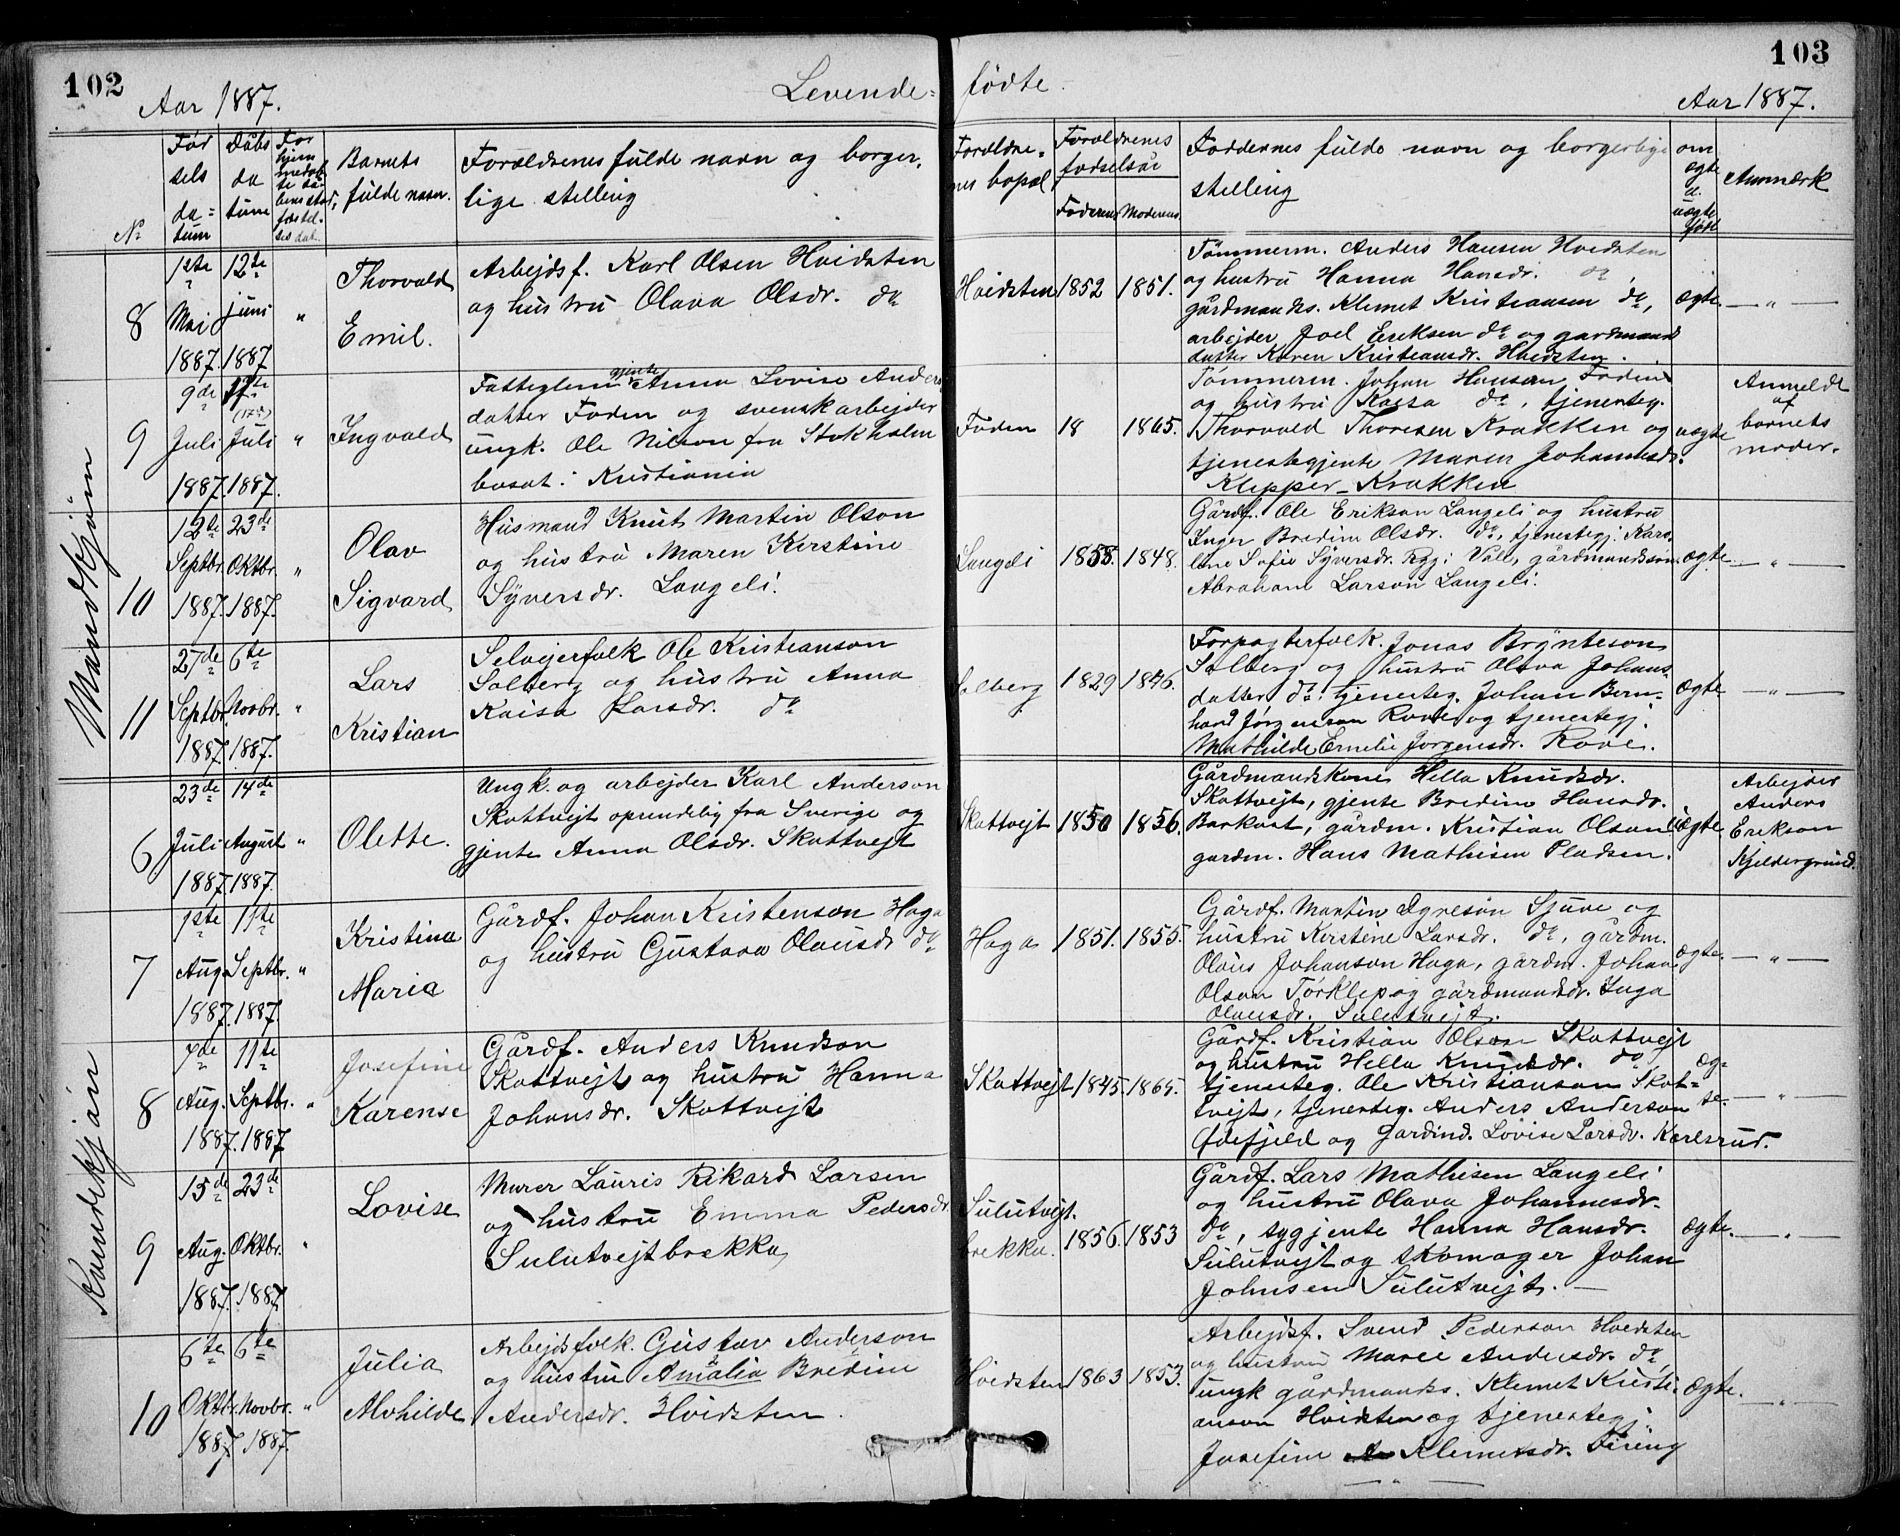 102
103
Levende- fødte.
Aar 1887.
Aar 1887.
No
Fød
sels
da=
tum
Daabs
da
tum
For
hjem
medøb
te da
bens stad
fæstel
ses dat.
Barnets
fulde navn.
Forældrenes fulde navn og borger,
lige stelling
Forældre=
nes bopæl
Forældrenes
fødselsår
Faderens
Moderens
Faddernes fulde navn og borgerlige
stelling
om
ægte
el.
uægte
født
Anmærk
Mandkjøn
8
1ste
Mai
1887.
12te
juni
1887
"
Thorvald
Emil.
Arbejdsf. Karl Olsen Hvidsten
og hustru Olava Olsdr. do
Hvidsten
1852
1851.
Tømmerm. Anders Hansen Hvidsten
og hustru Hanna Hansdr. do,
gårdmands. Klemet Kristiansen do,
arbejder Joel Eriksen do og gardmands
datter Karen Kristiansdr. Hvidsten.
ægte.
— " —
9
9de
Juli
1887.
17te
(17de)
Juli
1887.
"
Ingvald
Fattiglem gjente Anna Lovise Anders
datter Foden og svensk arbejder
ungk. Ole Nilson fra Stokholm
bosat i Kristiania
Foden
18
1865.
Tømmerm. Johan Hansen, Foden
og hustru Kaisa do, tjenesteg.
Thorvald Thoresen Krakken og
tjenestegjente Maren Johannesdr.
Klepper-Krakken
uægte
Anmeldt
af
barnets
moder.
10
12te
Septbr.
1887.
23de
Oktbr.
1887.
"
Olav
Sigvard
Husmand Knut Martin Olson
og hustru Maren Kirstine
Syversdr. Langeli.
Langeli
1858.
1848.
Gårdf. Ole Erikson Langeli og hustru
Inger Bredine Olsdr. do, tjenestegj. Karo-
line Sofie Syversdr. Rygi Vall, gårdmandssøn
Abraham Larson Langeli.
ægte
— " —
11
27de
Septbr.
1887.
6te
Novbr.
1887.
"
Lars
Kristian
Selvejerfolk Ole Kristianson
Solberg og hustru Anna
Kaisa Larsdr. do
Solberg
1829
1846.
Forpagterfolk. Jonas Brynteson
Solberg og hustru Olava Johans-
datter do. tjenesteg. Johan Bern-
hard Jørgenson Rove og tjenestegj.
Mathilde Emelie Jorgensdr. Rove.
ægte
— " —
Kvindekjøn
6
23de
Juli
1887.
14de
August
1887.
"
Olette.
Ungk. og arbejder Karl Anderson
Skattvejt oprindelig fra Sverige og
gjente Anna Olsdr. Skattvejt
Skattvejt
1850
1856.
Gårdmandskone Hella Knudsdr.
Skattvejt, gjente Bredine Hansdr.
Barkost, gårdm. Kristian Olson
gardm. Hans Mathisen Pladsen.
uægte
Arbejder
Anders
Erikson
Kjeldergrund.
7
1ste
Aug
1887.
11te
Septbr.
1887.
"
Kristina
Maria
Gårdf. Johan Kristenson Haga
og hustru Gustava Olausdr do
Haga
1851.
1855.
Gårdf. Martin Agreson Sjuve og
hustru Kirstine Larsdr. do, gårdm.
Olaus Johanson Haga, gårdm. Johan
Olson Torklep og gårdmandsdr. Inga
Olausdr. Sulutvejt.
ægte.
— " —
8
7de
Aug.
1887.
11te
Septbr.
1887
"
Josefine
Karense
Gårdf. Anders Knudson
Skattvejt og hustru Hanna
Johansdr. Skattvejt
Skattvejt
1845.
1865.
Gårdf. Kristian Olson Skattvejt
og hustru Hella Knudsdr. do,
tjenesteg. Ole Kristianson Skat-
tvejt, tjenesteg. Anders Anderson
Ødefjeld og Gardind. Lovise Larsdr. Karlsrud.
æg-
te.
— " —
9
15de
Aug.
1887.
23de
Oktbr.
1887
"
Lovise
Murer Lauris Rikard Larsen
og hustru Emma Pedersdr.
Sulutvejtbrekka,
Sulutvejt.
brekka.
1856.
1853
Gårdf. Lars Mathisen Langeli
og hustru Olava Johannesdr.
do, sygjente Hanna Hansdr.
Sulutvejt og skomager Johan
Johnsen Sulutvejt. —
ægte.
— " —
10
6te
Oktbr.
1887.
6te
Novbr.
1887.
"
Julia
Alvhilde
Arbejdsfolk. Gustav Anderson
og hustru Amalia Bredine
Andersdr. Hvidsten.
Hvidsten
1863
1853.
Arbejdsf. Svend Pederson Hvidsten
og hustru Maree Andersdr. do,
ungk gårdmands. Klemet Kristi-
anson Hvidsten og tjenestegj.
Josefine Klemetsdr. Fining
ægte.
— " —
— " —